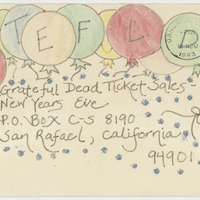 TEFUL D
1983
Grateful Dead Ticket Sales -
New Years Eve
P.O. BOX C-S 8190
San Rafael, California
94901